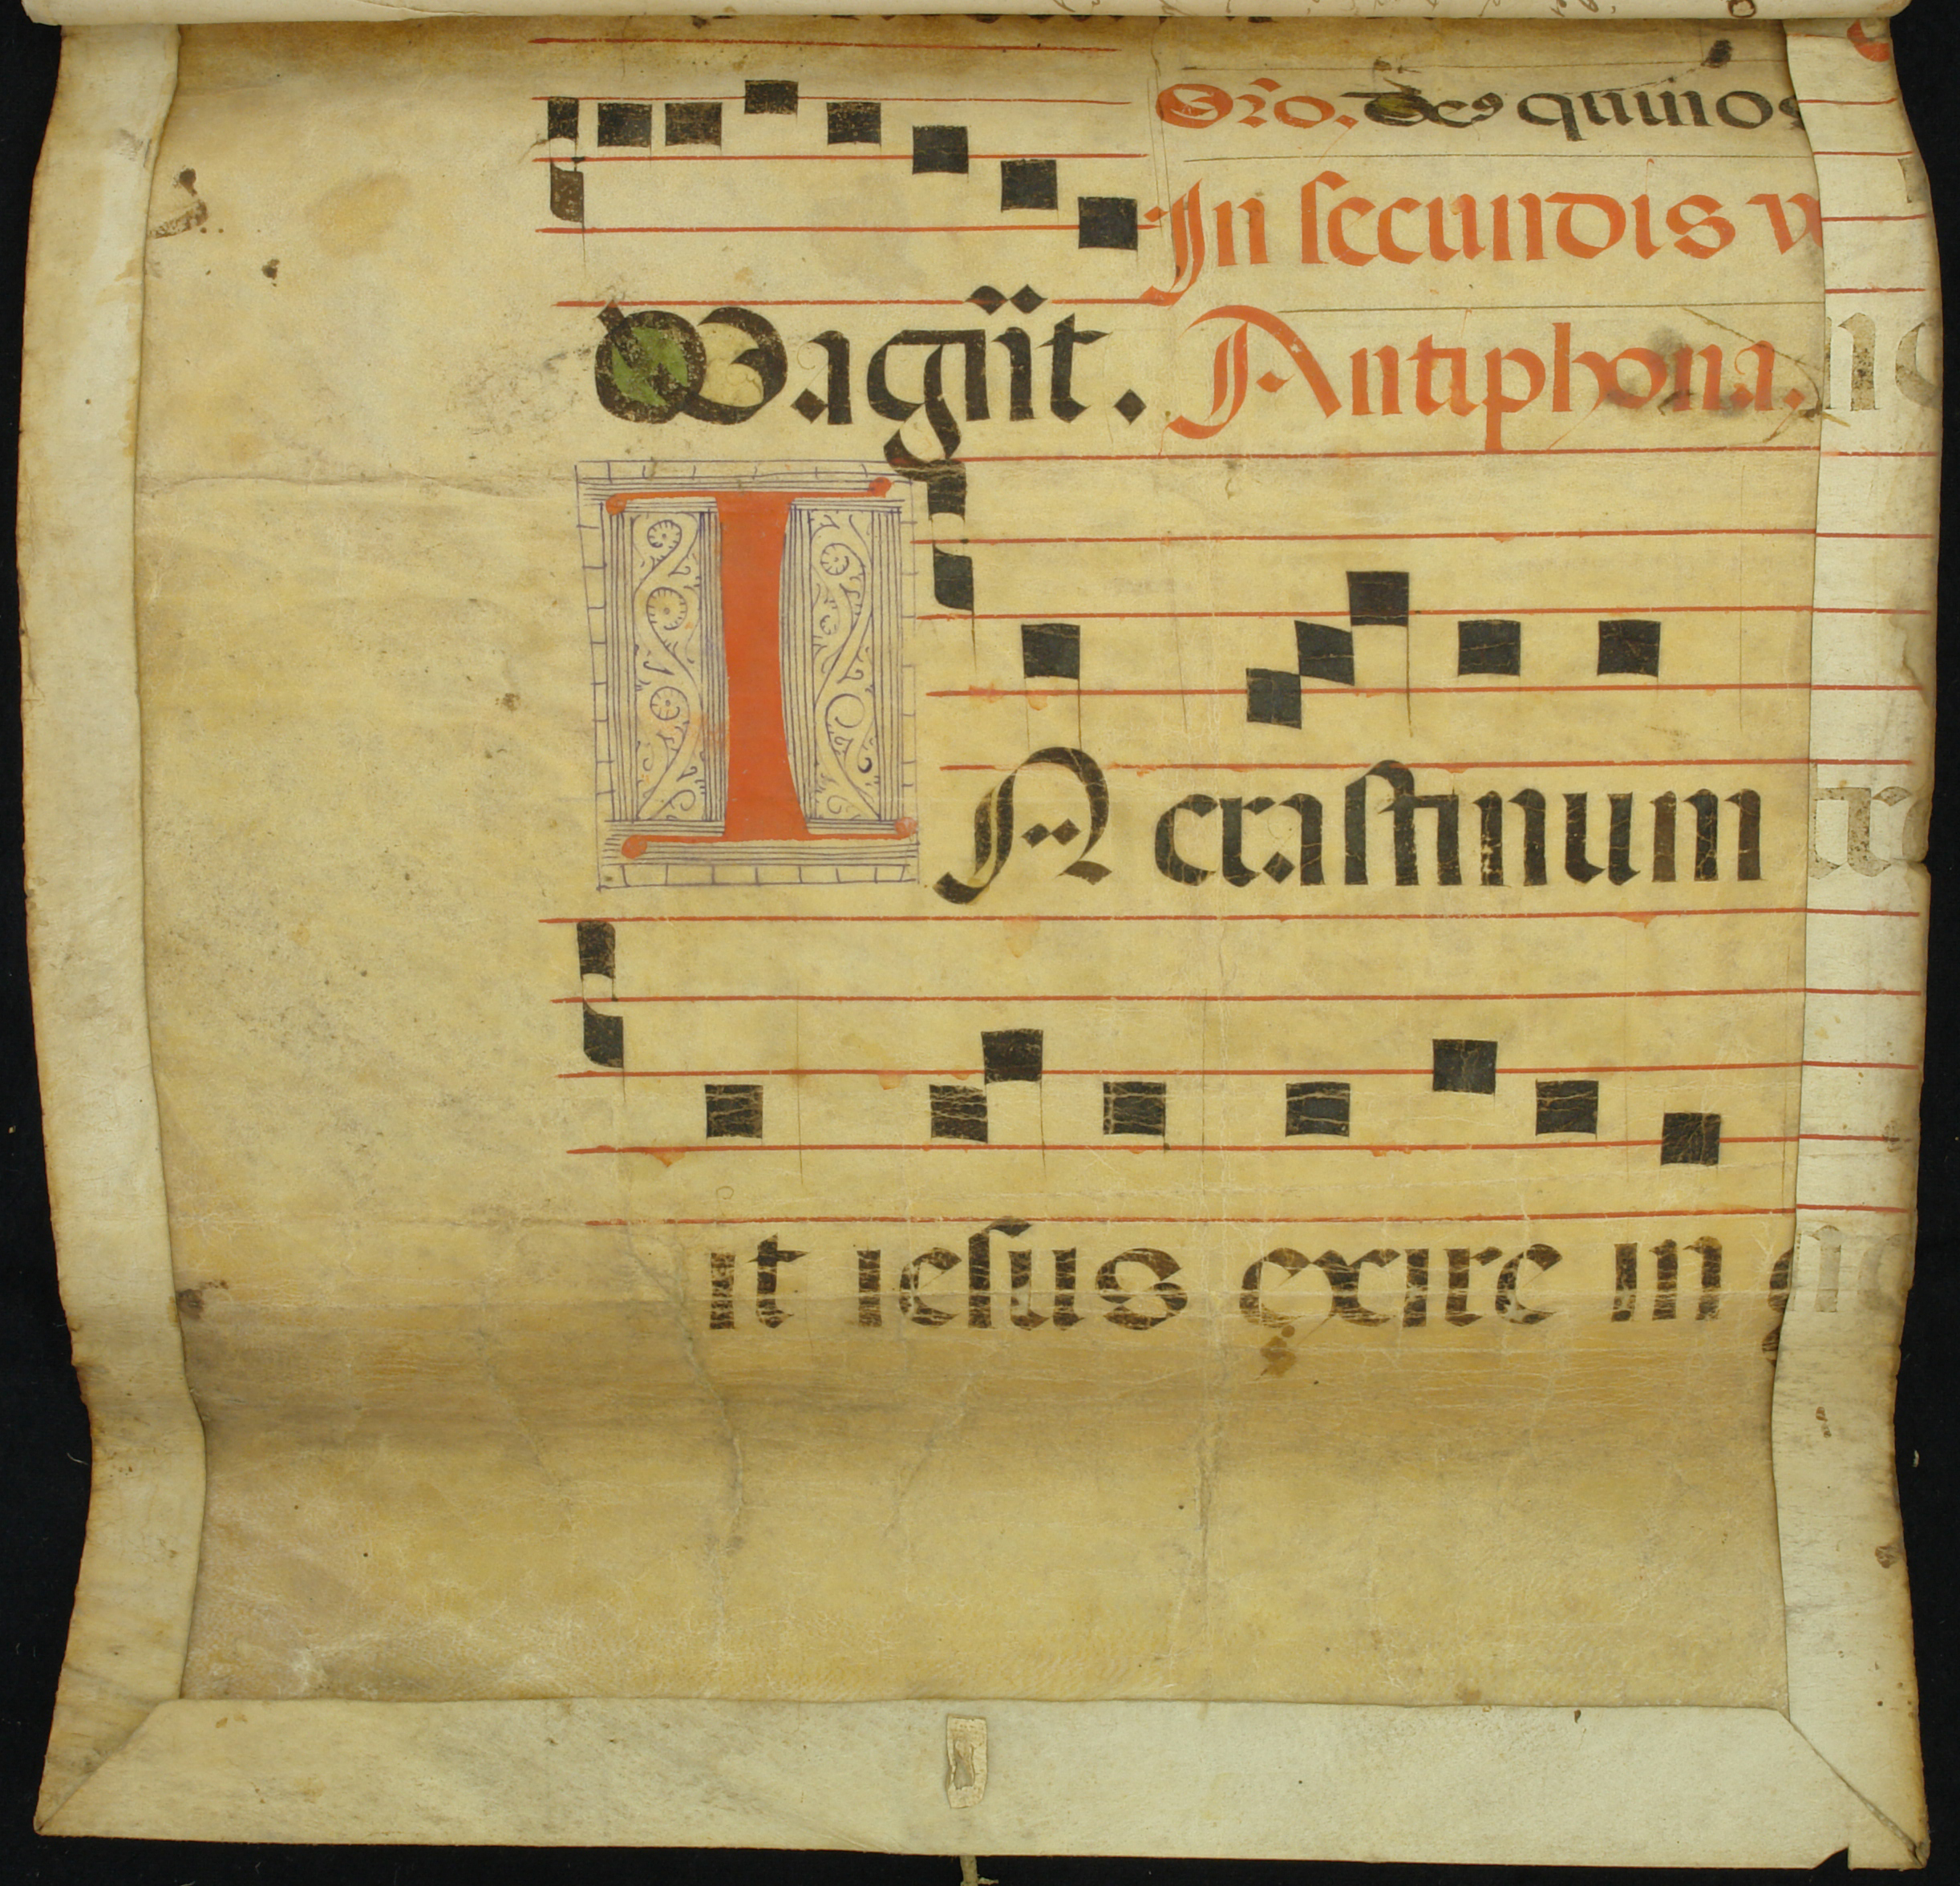 Oro. Deꝰ qui nos
In secundis v
Magnit. Antiphona.
IN crastinum
it iesus exire in